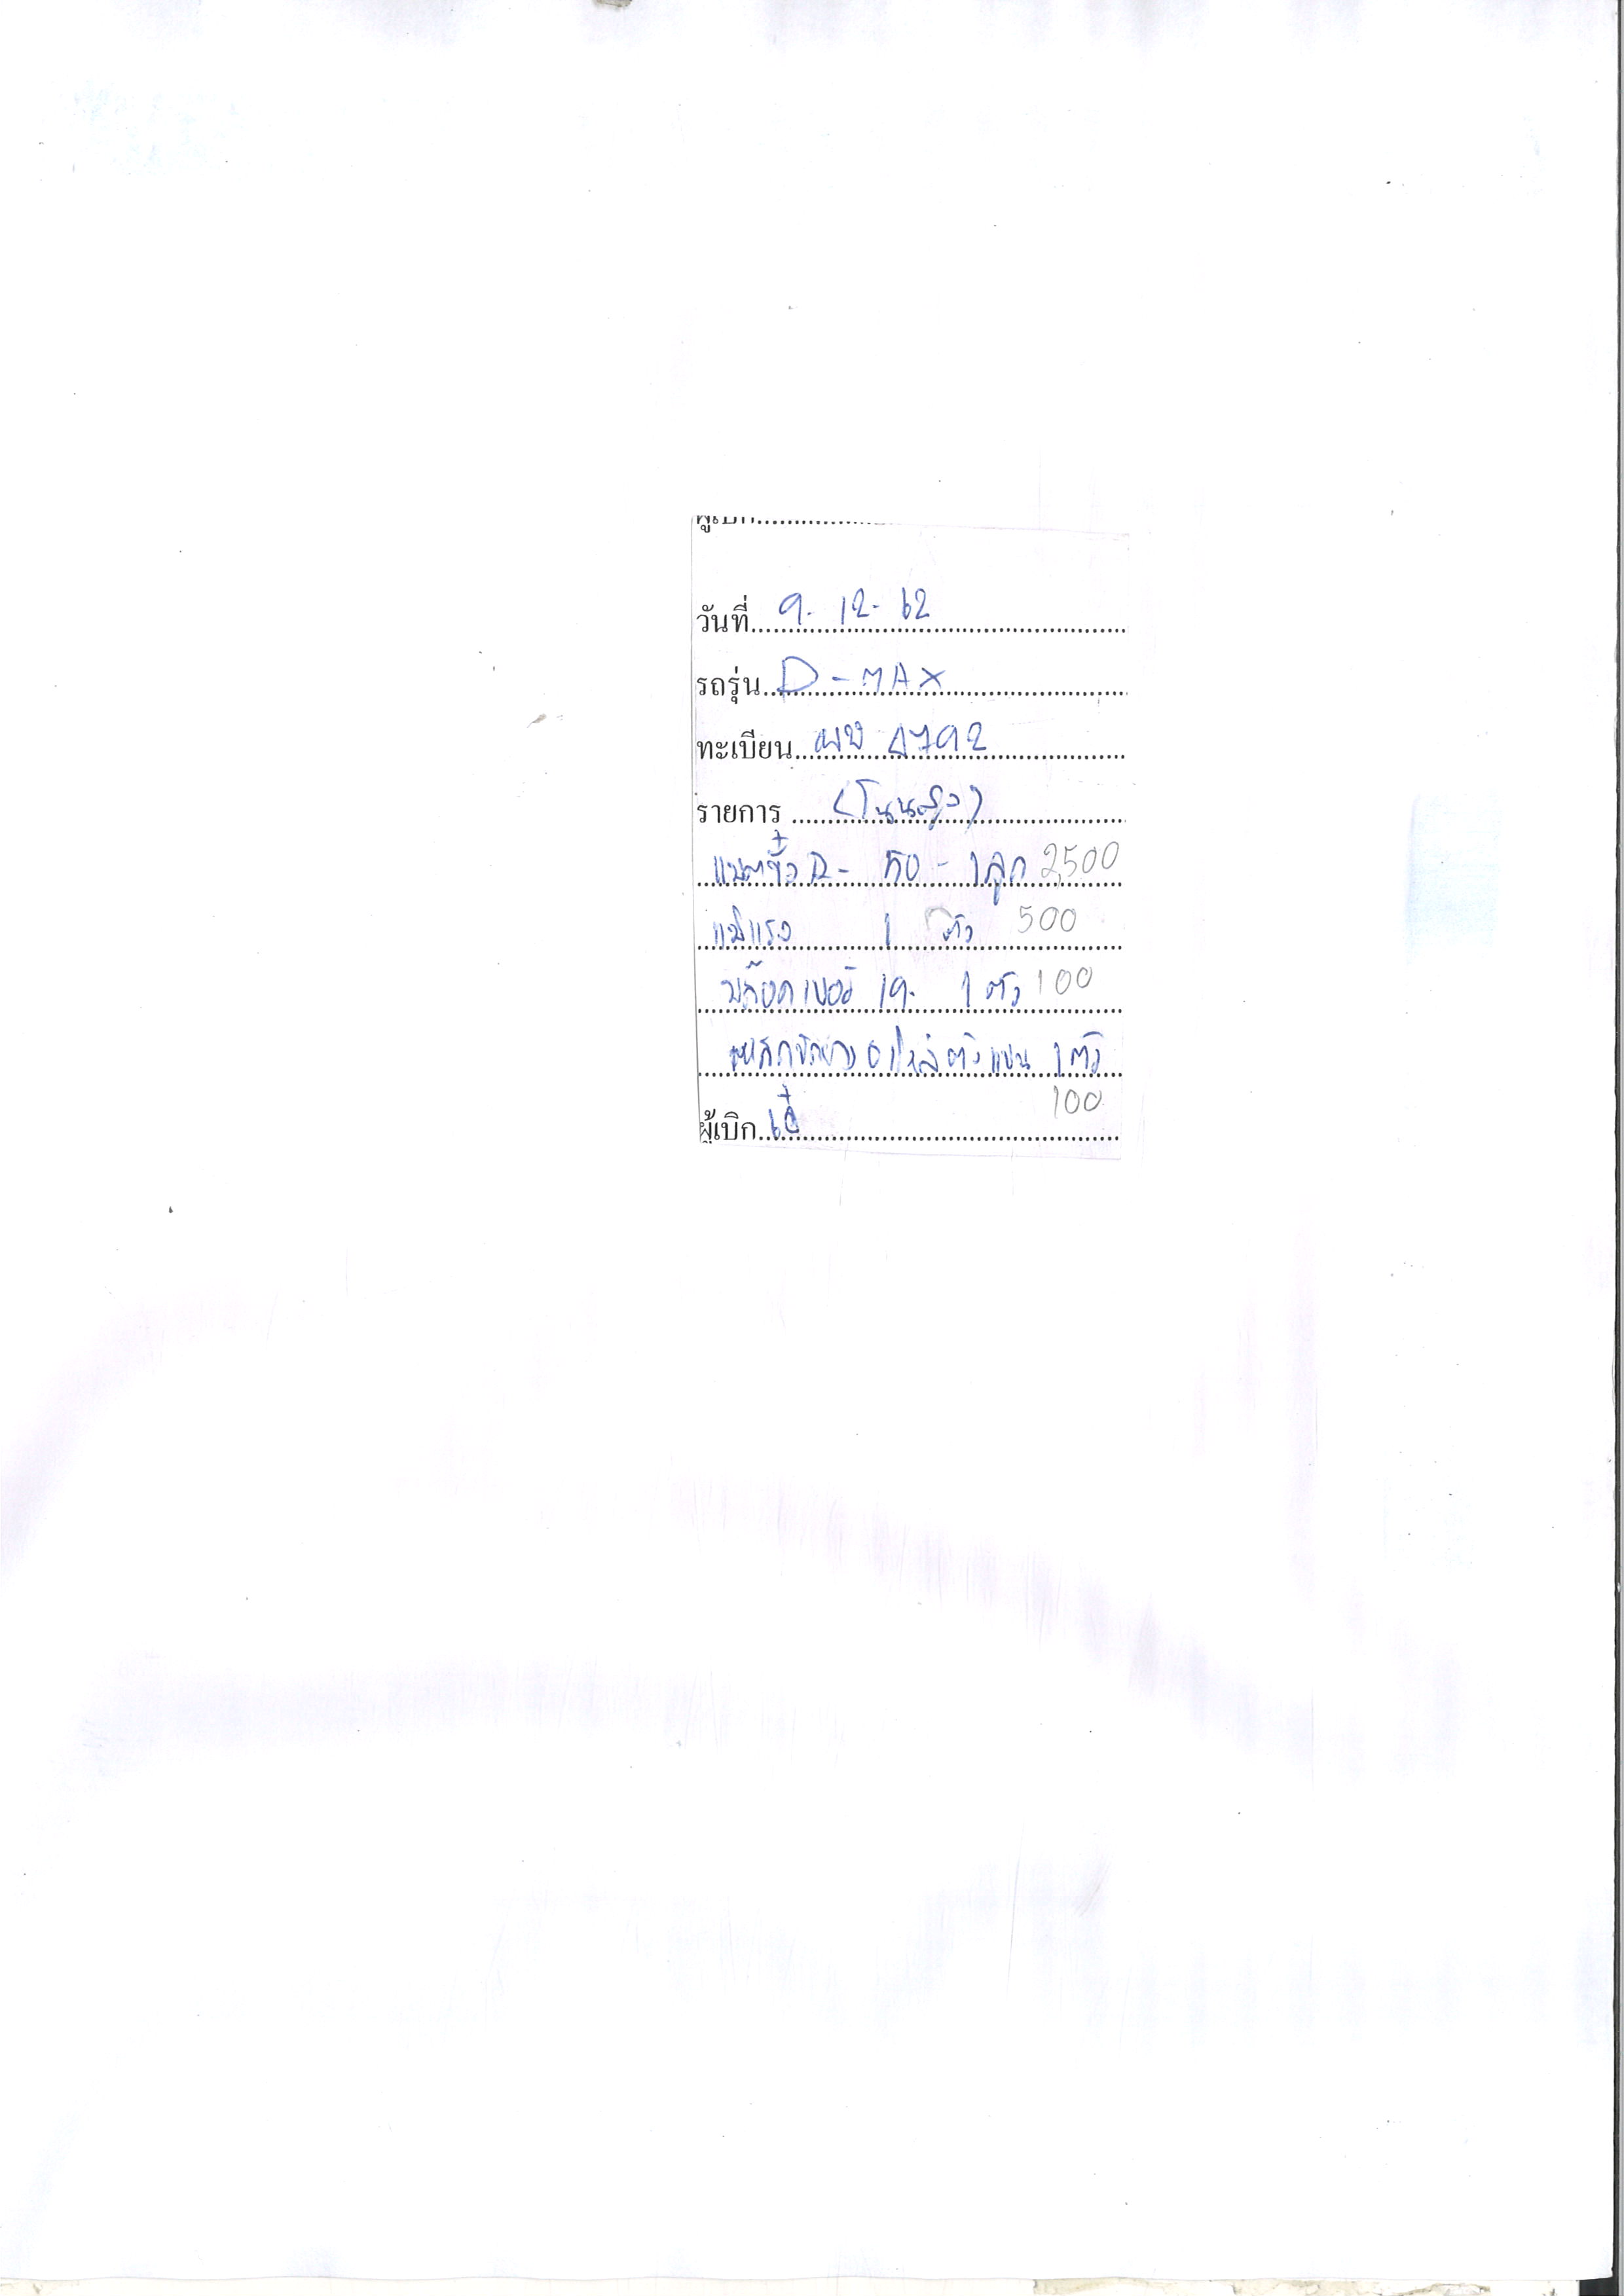 ผู้เบิก
วันที่ 9-12-62
รถรุ่น D-MAX
ทะเบียน ผบ 4792
รายการ (โนนสูง)
แบตขั้ว R- 50 - 1 ลูก 2,500
แม่แรง 1 ตัว 500
บล๊อคเบอร์ 19. 1 ตัว 100
อะไหล่ตัวแขน 1 ตัว
100
ผู้เบิก